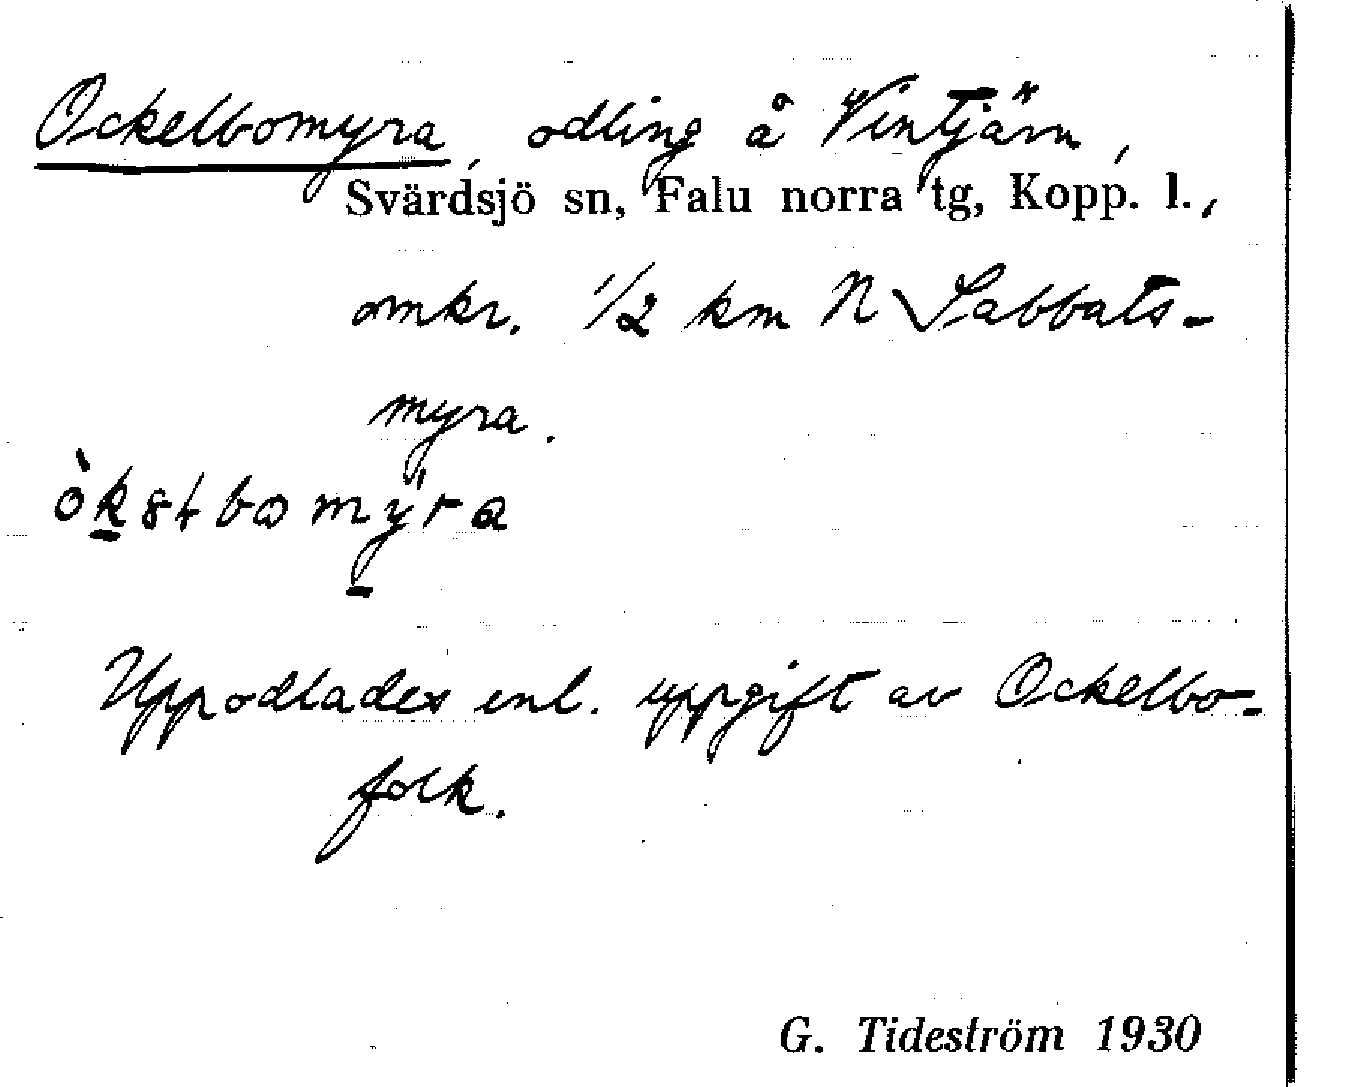 Ockelbomyra, odling å Vintjärn,
Svärdsjö sn, Falu norra tg, Kopp. l.,
omkr. 1/2 km N Sabbats-
myra.
Uppodlades enl. uppgift av Ockelbo-
folk.
G. Tideström 1930